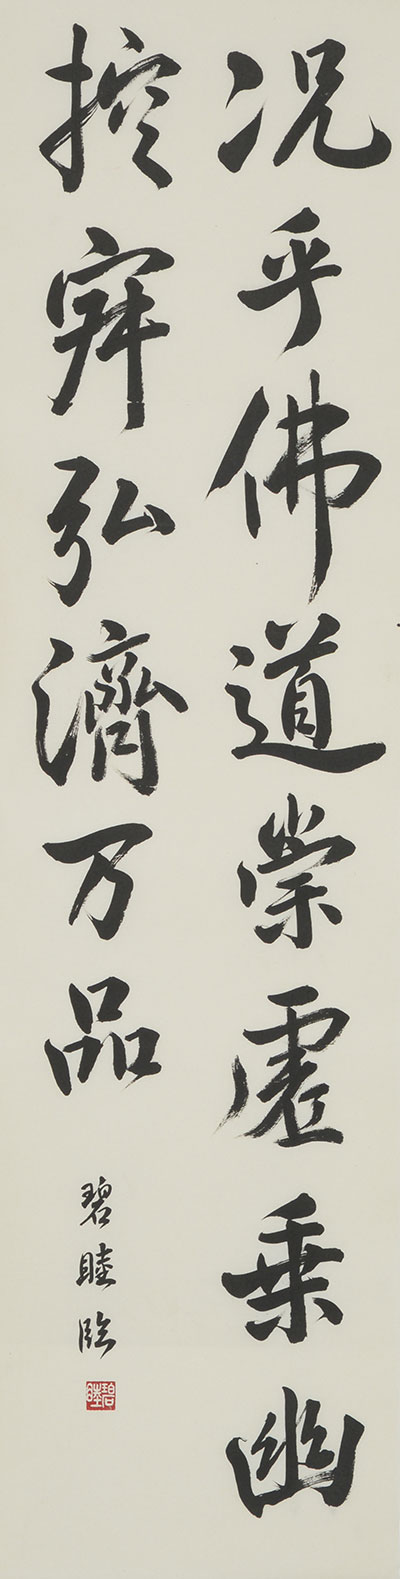 况乎佛道崇虚乗幽
控寂弘濟万品
碧睦臨
碧睦